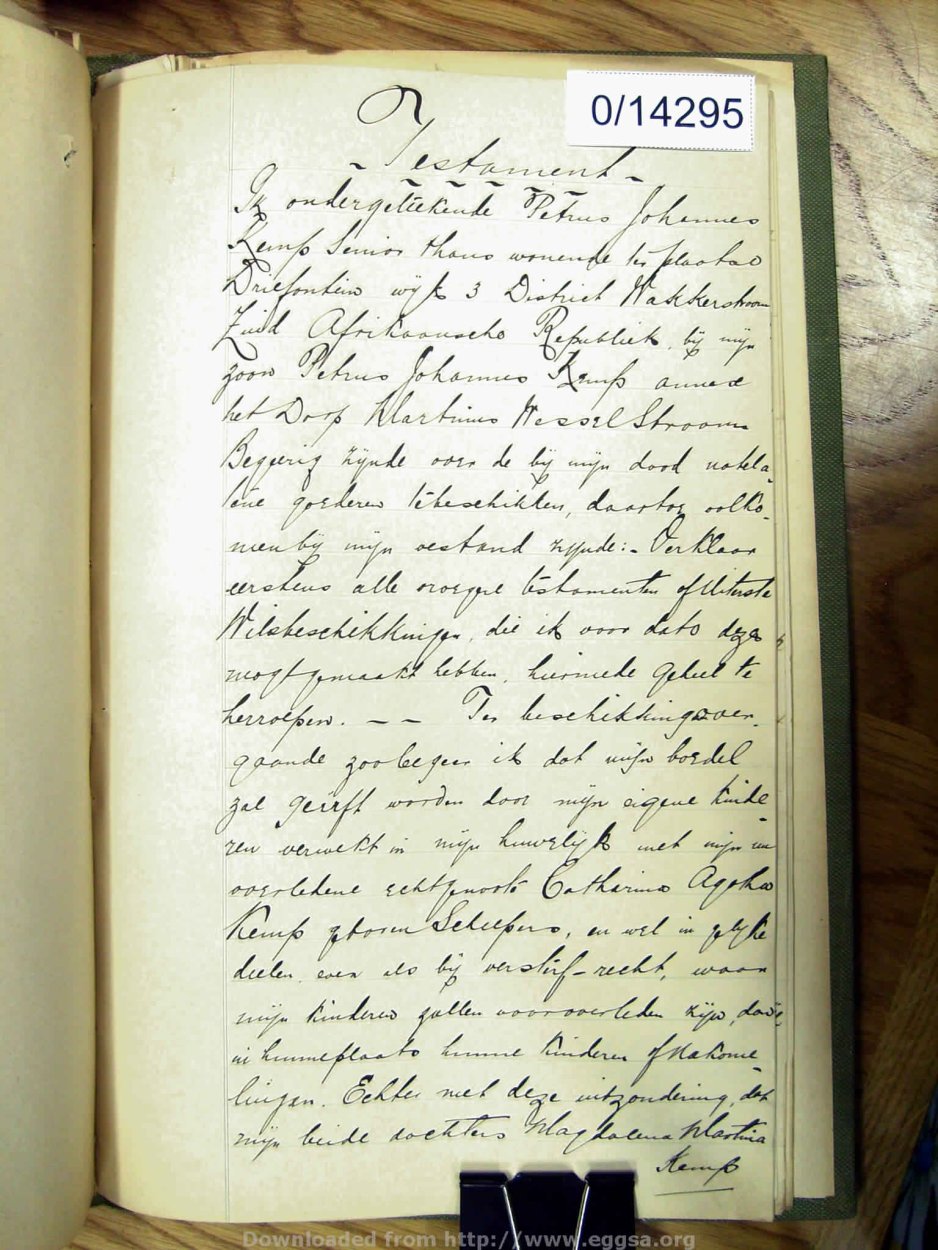 0/14295
Testament
Ik ondergeteekende Petrus Johannes
Kemp Senior thans wonende ter plaatse
Driefontein wijk 3 District Wakkerstroom
Zuid Afrikaansche Republiek, bij mijn
zoon Petrus Johannes Kemp annexe
het Dorp Martinus Wessel Stroom
Begeerig zijnde over de bij mijn dood natela-
tene goederen te beschikken, daartoe volko-
men bij mijn verstand zijnde:- Verklaar
eerstens alle vroegere testamenten of Uiterste
Wilsbeschikkingen, die ik voor dato dezes
mogt gemaakt hebben, hiermede geheel te
herroepen. — — Ter beschikking over-
gaande zoo begeer ik dat mijn boedel
zal geërft worden door mijn eigene kinde-
ren verwekt in mijn huwelijk met mijn nu
overledene echtgenoote Catharina Agatha
Kemp geboren Scheepers, en wel in gelyke
deelen even als bij versterf-recht, waar
mijn kinderen zullen vooroverleden zijn, door
in hunne plaats hunne kinderen of Nakome-
lingen. Echter met deze uitzondering, dat
mijn beide dochters Magdalena Martina
Kemp
Downloaded from http://www.eggsa.org